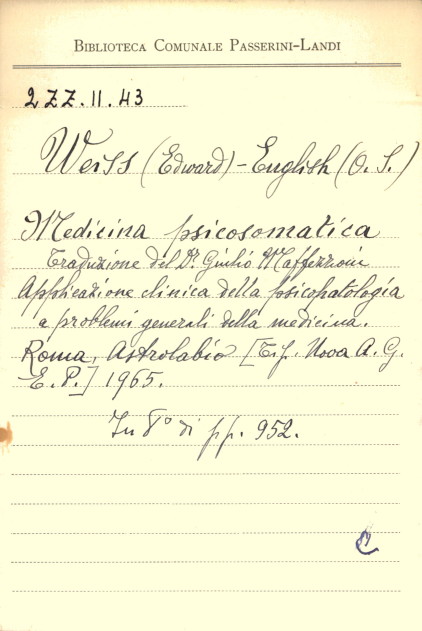 BIBLIOTECA COMUNALE PASSERINI-LANDI
2 ZZ. II. 43
Weiss (Edward) - English (O. S.)
Medicina psicosomatica
Traduzione del Dr. Giulio Maffezzoni
Applicazione clinica della psicopatologia
a problemi generali della medicina.
Roma, Astrolabio [Tip. Nova A. G.
E. P.] 1965.
In 8° di pp. 952.
C